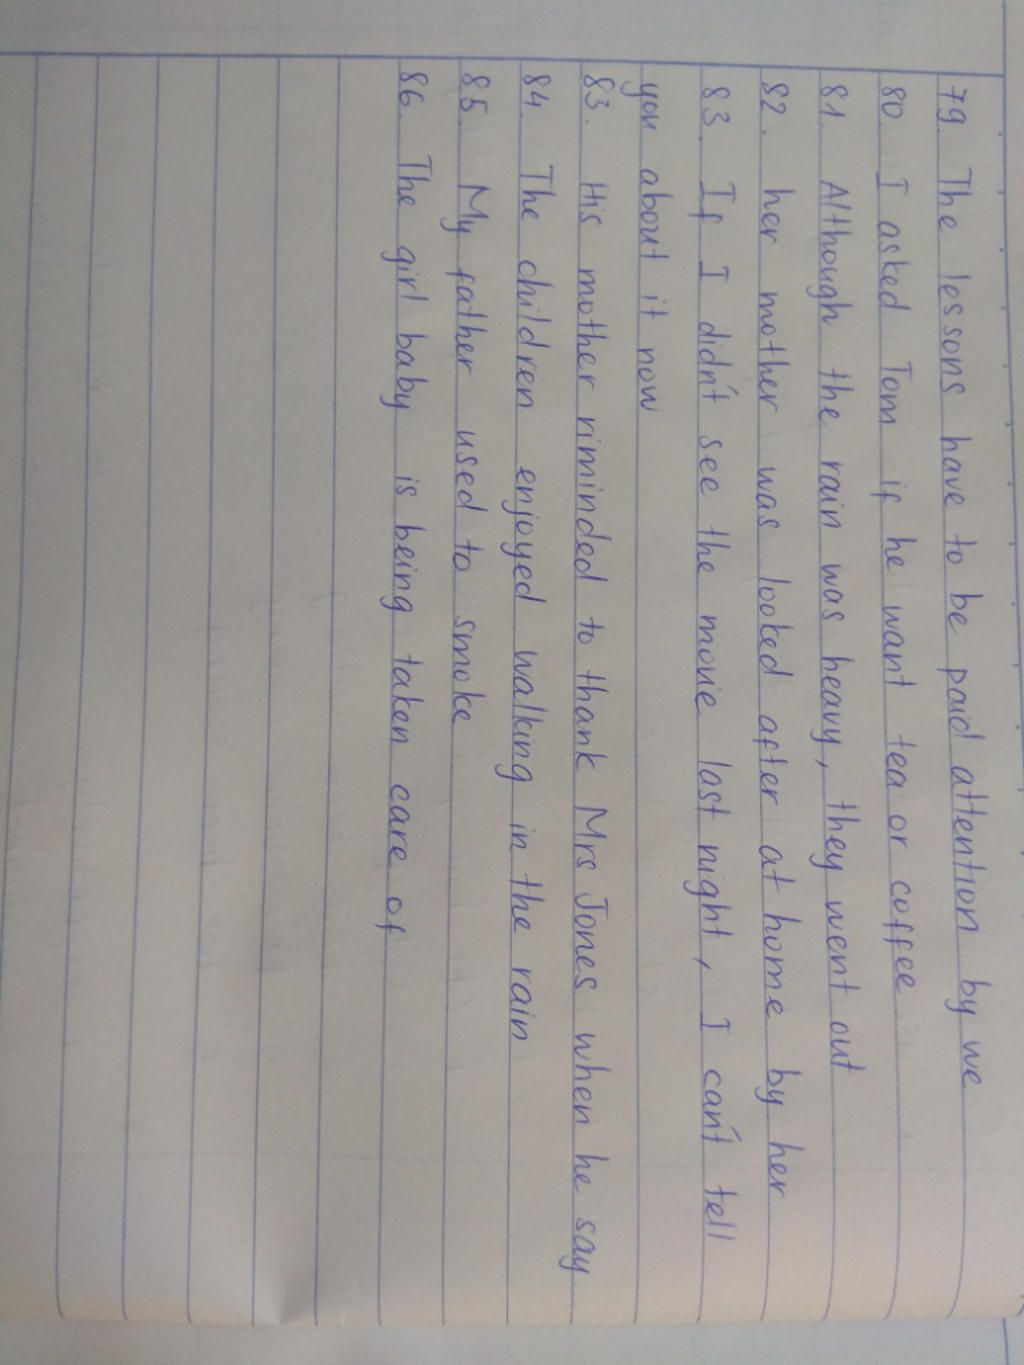 79. The lessons have to be paid attention by we
80. I asked Tom if he want tea or coffee
81. Although the rain was heavy, they went out
82. her mother was looked after at home by her
83. If I didn't see the movie last night, I can't tell
you about it now
83. His mother riminded to thank Mrs Jones when he say
84. The children enjoyed walking in the rain
85. My father used to smoke
86. The girl baby is being taken care of